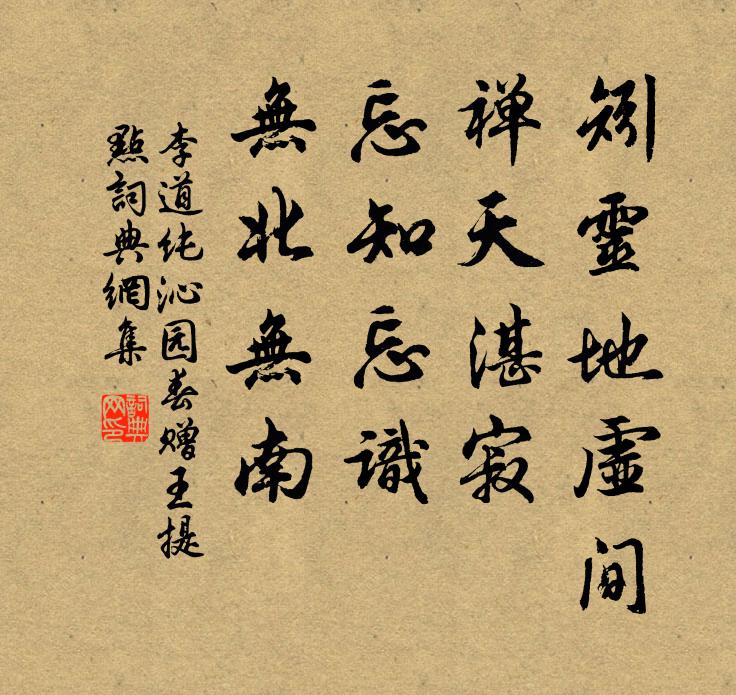 矧靈地虛閒
禅天湛寂
忘知忘識
無北無南
李道纯沁园春赠王提
點詞典網集
詞典网印